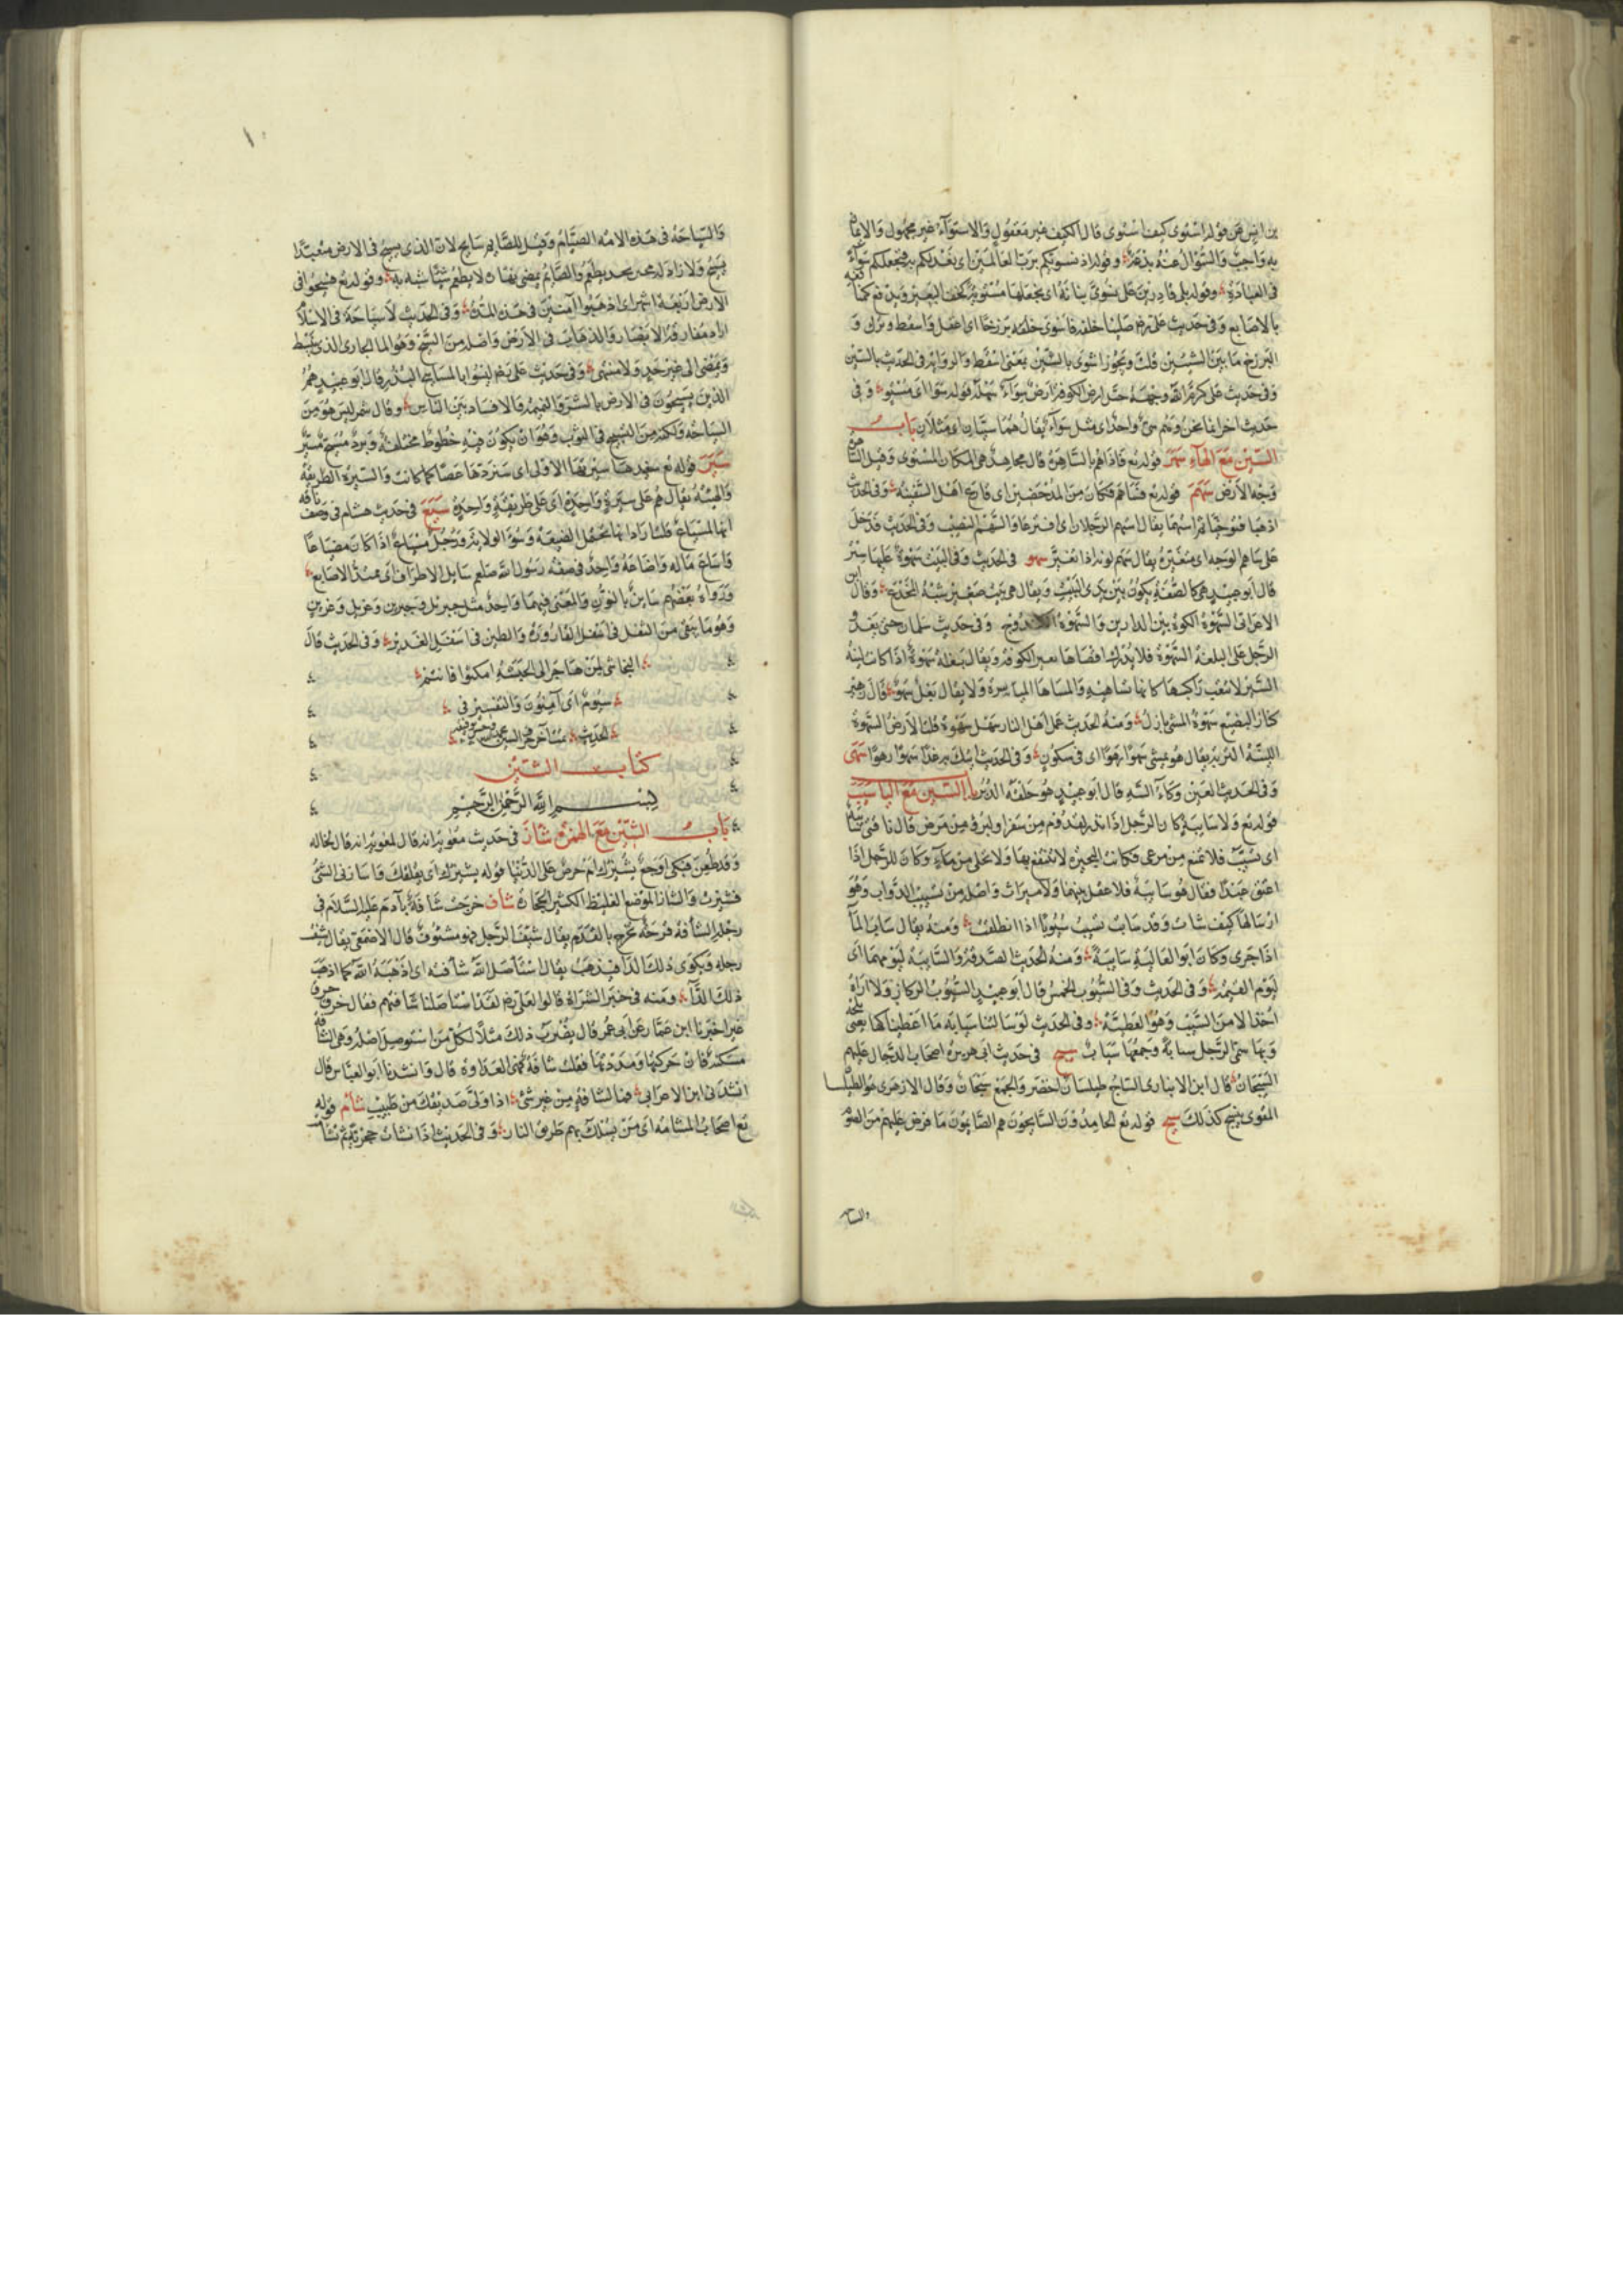 بن انس عن قوله استوى كيف استوى قال الكيف غير معقول والاستواء غير مجهول والايمان
به واجب والسؤال عنه بدعة وقوله اذ نسويكم برب العالمين اى نعدلكم به فنجعلكم سواء
فى العبادة وقوله بلى قادرين على ان نسوى بنانه اى نجعلها مستوية كخف البعير ونرفع منافعه
بالاصابع وفى حديث على رضه صلينا خلفه فاسوى خلفه برزخا اى اغفل واسقط و
البرزخ ما بين الشيئين قلت ويجوز اشوى بالشين بمعنى اسقط والرواية فى الحديث بالسين
وفى حديث على كرم الله وجهه حبذا ارض الكوفة ارض سواء سهلة قوله سوا اى مستو وفى
حديث اخر انما نحن وهم سى واحد اى مثل سواء يقال هما سيان اى مثلان باب
السين مع الهاء سهر قوله تع فاذا هم بالساهرة قال مجاهد هى المكان المستوى وقيل الساهرة
وجه الارض سهم قوله تع فساهم فكان من المدحضين اى قارع اهل السفينة وفى الحديث
اذهبا فتوخيا ثم استهما يقال استهم الرجلان اى اقترعا والسهم النصيب وفى الحديث فدخل
على ساهم الوجه اى متغيره يقال سهم لونه اذا تغير سهو فى الحديث وفى البيت سهوة عليها ستر
قال ابو عبيد هى كالصفة يكون بين يدى البيت ويقال هى بيت صغير شبه المخدع وقال ابن
الاعرابى السهوة الكوة بين الدارين والسهوة وفى حديث سلمان حتى يغدو
الرجل على البغلة السهوة فلا يدرك اقصاها يعنى الكوفة ويقال بغلة سهوة اذا كانت لينة
السير لا تتعب راكبها كانها تساهيه والمساهاة المياسرة ولا يقال بغل سهو قال زهير
كناز البضيع سهوة المشى بازل ومنه الحديث عمل اهل النار سهل بسهوة قلنا الارض السهوة
اللينة التربة يقال هو يمشى سهوا رهوا اى فى سكون وفى الحديث اتيك به غدا سهوا رهوا سهى
وفى الحديث العين وكاء السه قال ابو عبيد هو حلقة الدبر باب السين مع اليا سيب
قوله تع ولا سايبة كان الرجل اذا نذر لقدوم من سفر او لبرء من مرض قال ناقتى سايبة
اى تسيب فلا تمنع من مرعى فكانت كالبحيرة لا ينتفع بها ولا تخلى من ماء وكان للرجل اذا
اعتق عبدا فقال هو سايبة فلا عقل بينهما ولا ميراث واصله من تسييب الدواب وهو
ارسالها كيف شات وقد ساب يسيب سيوبا اذا انطلق ومنه يقال ساب الماء
اذا جرى وكان ابو العالية سايبة ومنه الحديث الصدقة والسايبة ليومهما اى
ليوم القيمة وفى الحديث وفى السيوب الخمس قال ابو عبيد السيوب الركاز ولا اراه
اخذ الا من السيب وهو العطية وفى الحديث لو سالتنا سيابه ما اعطيناكها يعنى بلحة
وبها سمى الرجل سيابة وجمعها سياب سيج فى حديث ابى هريرة اصحاب الدجال عليهم
السيجان قال ابن الانبارى الساج طيلسان اخضر والجمع سيجان وقال الازهرى هو الطيلسان
المقوى ينسج كذلك سيح قوله تع الحامدون السايحون هم الصايمون ما فرض عليهم من الصوم
والسياحة
والسياحة فى هذه الامة الصيام وقيل للصايم سايح لان الذى يسيح فى الارض متعبدا
يسيح ولا زاد له فحين يجد يطعم والصايم يمضى نهاره لا يطعم شيئا شبه به وقوله تع فسيحوا فى
الارض اربعة اشهر اى اذهبوا آمنين فى هذه المدة وفى الحديث لا سياحة فى الاسلام
اراد مفارقة الامصار والذهاب فى الارض واصله من السيح وهو الما الجارى الذى ينبسط
ويمضى الى غير حد ولا منتهى وفى حديث على رضه ليسوا بالمساييح البذر قال ابو عبيد هم
الذين يسيحون فى الارض بالشر والنميمة والافساد بين الناس وقال شمر ليس هو من
السياحة ولكنه من التسييح فى الثوب وهو ان يكون فيه خطوط مختلفة وبرد مسيح مسير
سير قوله تع سنعيدها سيرتها الاولى اى سنردها عصا كما كانت والسيرة الطريقة
والهيئة يقال هم على سيرة واحدة اى على طريقة واحدة سيع فى حديث هشام فى وصف ناقة
انها لمسياع قلنا اراد انها تحتمل الضيعة وسوء الولاية ورجل مسياع اذا كان مضياعا
واساع ماله واضاعه واحد فى صفة رسول الله صلعم سايل الاطراف اى ممتد الاصابع
ورواه بعضهم ساين بالنون والمعنى فيهما واحد مثل جبريل وجبرين وغربل وغربن
وهو ما يبقى من الثفل فى اسفل القارورة والطين فى اسفل الغدير وفى الحديث قال
النجاشى لمن هاجر الى الحبشة امكثوا فانتم
سيوم اى آمنون والتفسير فى
الحديث
كتاب الشين
بسم الله الرحمن الرحيم
باب الشين مع الهمزة شاز فى حديث معوية انه قال لمعوية انه قال لخاله
وقد طعن فبكى اوجع يشئزك ام حرص على الدنيا قوله يشئزك اى يقلقك واشازنى الشئ
فشئزت والشاز الموضع الغليظ الكثير الحجارة شاف خرجت شافة بآدم عليه السلام فى
رجله الشافة قرحة تخرج بالقدم يقال شئف الرجل فهو مشئوف قال الاصمعى يقال شئفت
رجله فيكوى ذلك الداء فيذهب يقال استاصل الله شافته اى اذهبه الله كما اذهب
ذلك الداء ومنه فى خبر الشراة قالوا لعلى رضه لقد استاصلنا شافتهم فقال حرقوص
غير اخبرنا ابن عمار عن ابى عمر قال يضرب ذلك مثلا لكل من استوصل اصله وهى الشافة
مسكنة فان حركتها ومددتها فقلت شآفة فهى العداوة قال وانشدنا ابو العباس قال
انشدنى ابن الاعرابى فما لشآفة من غير شئ اذا ولى صديقك من طبيب شام قوله
تع اصحاب المشامة اى من يسلك بهم طريق النار وفى الحديث اذا نشات حجرية ثم تشامت